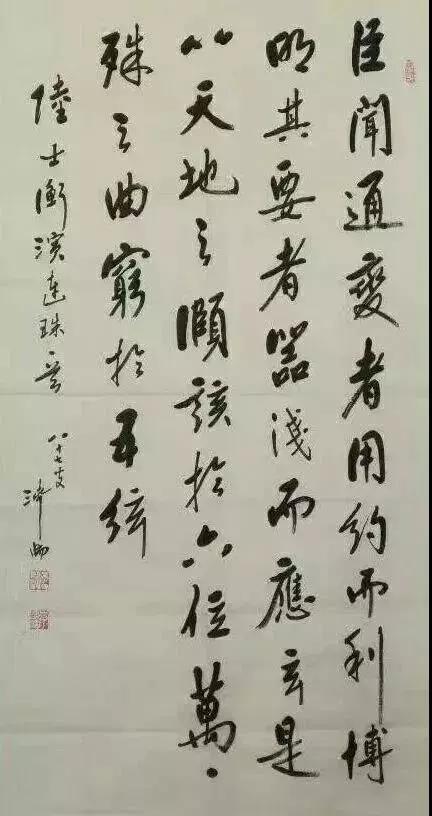 臣聞通變者用約而利博
明其要者器淺而應玄是
以天地之賾該於六位萬
殊之曲窮於五絃
陸士衡演連珠 八十七叟